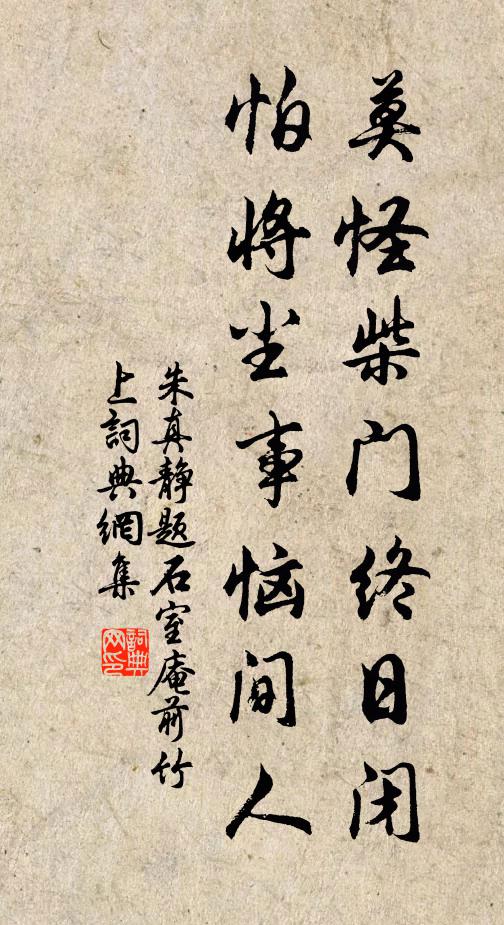 莫怪柴门终日闭
怕将尘事恼间人
朱真静题石室庵前竹
上詞典網集
詞典
网印